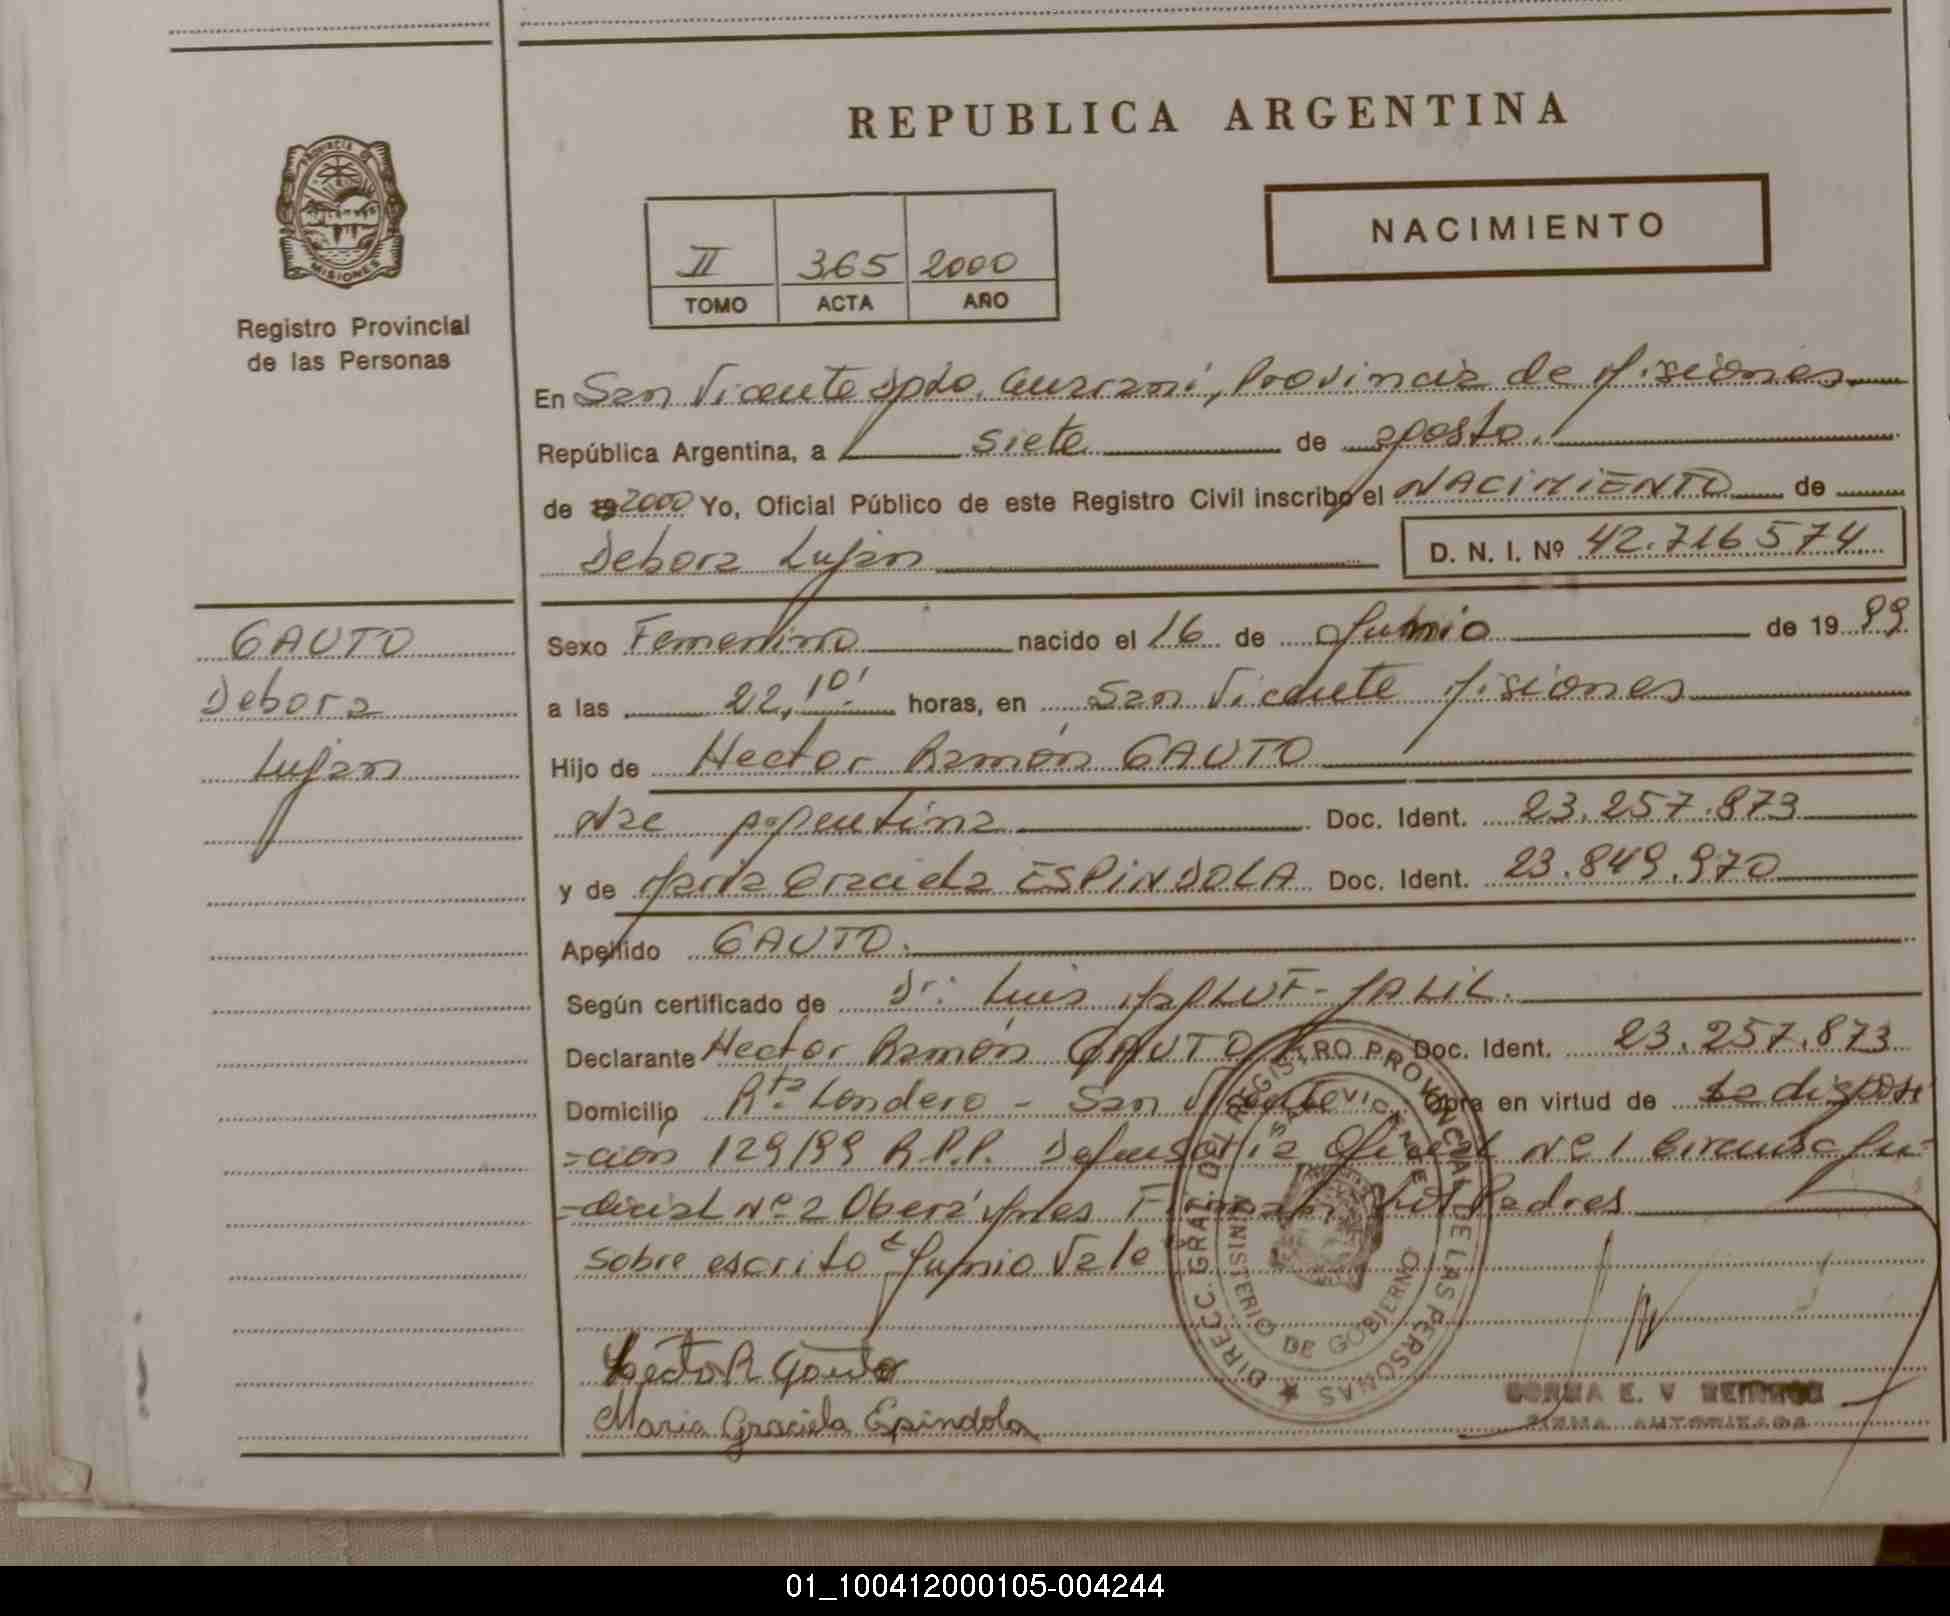 REPUBLICA ARGENTINA
PROVINCIA DE
MISIONES
Registro Provincial
de las Personas
II 365 2000
TOMO ACTA AÑO
NACIMIENTO
En San Vicente Dpto. Guaraní, Provincia de Misiones
República Argentina, a siete de agosto.
de 2000 Yo, Oficial Público de este Registro Civil inscribo el NACIMIENTO de
Debora Lujan D. N. I. Nº 42.716574
GAUTO
Debora
Lujan
Sexo Femenino nacido el 16 de Junio de 1999
a las 22,10' horas, en San Vicente Misiones
Hijo de Hector Ramón GAUTO
Nac Argentina Doc. Ident. 23.257.873
y de Maria Graciela ESPINDOLA Doc. Ident. 23.849.970
Apellido GAUTO.
Según certificado de Dr. Luis MALUF-JALIL.
Declarante Hector Ramón GAUTO Doc. Ident. 23.257.873
Domicilio Rta Londero - San Vicente Obra en virtud de La disposi
=ción 129/99 R.P.P. Defensoria Oficial Nº 1 Circunsc Ju-
=dicial Nº 2 Oberá Mnes Padres
sobre escrito Junio Vale
DIRECC. GRAL. DEL REGISTRO PROVINCIAL DE LAS PERSONAS
SAN VICENTE
MINISTERIO DE GOBIERNO
Hector R Gauto
Maria Graciela Espindola
E. V
FIRMA AUTORIZADA
01_100412000105-004244